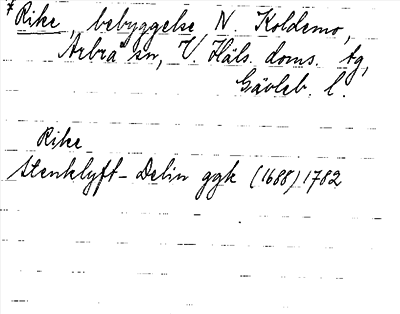 *Rike, bebyggelse N Koldemo,
Arbrå sn, V. Häls. doms. tg,
Gävleb. l.
Rike
Stenklyft-Delin ggk (1688) 1782